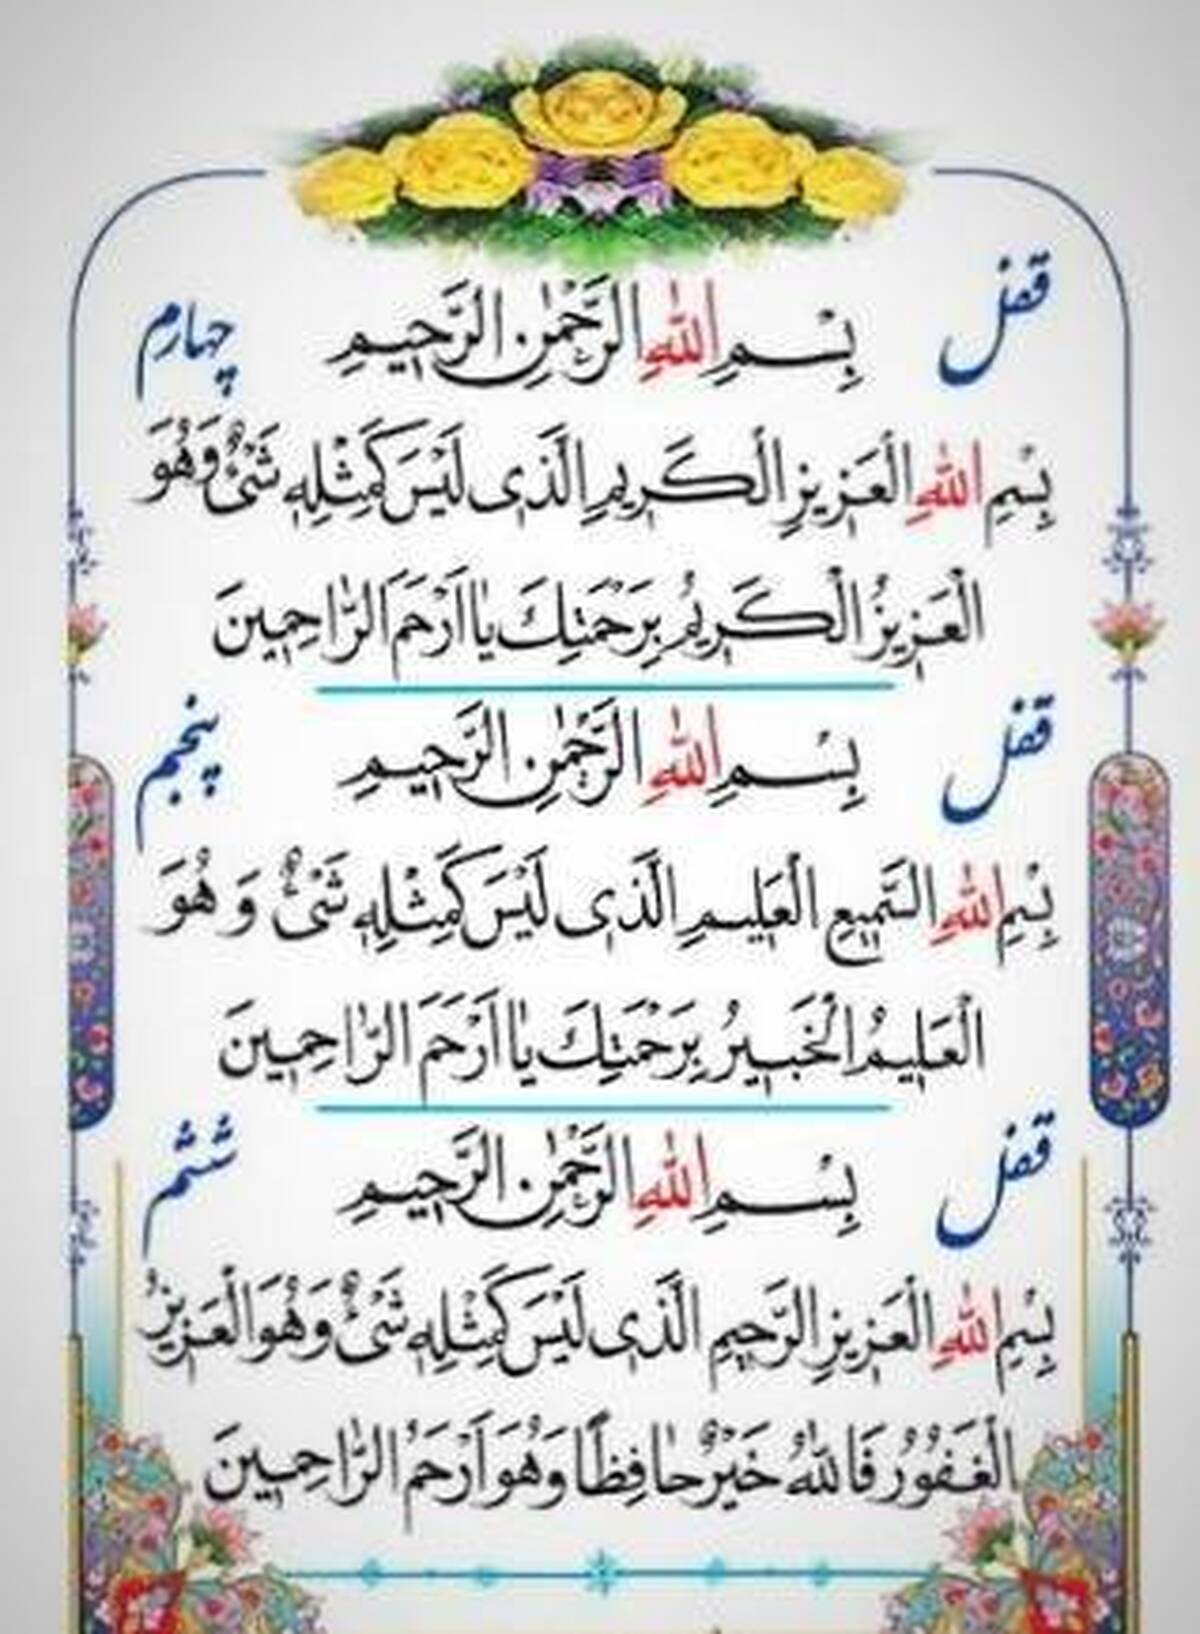 قفل چهارم
بِسْمِ اللهِ الرَّحْمٰنِ الرَّحيمِ
بِسْمِ اللهِ الْعَزيزِ الْكَريمِ الَّذى لَيْسَ كَمِثْلِهِ شَىْءٌ وَهُوَ
الْعَزيزُ الْكَريمُ بِرَحْمَتِكَ يا اَرْحَمَ الرّاحِمينَ
قفل پنجم
بِسْمِ اللهِ الرَّحْمٰنِ الرَّحيمِ
بِسْمِ اللهِ السَّميعِ الْعَليمِ الَّذى لَيْسَ كَمِثْلِهِ شَىْءٌ وَ هُوَ
الْعَليمُ الْخَبيرُ بِرَحْمَتِكَ يا اَرْحَمَ الرّاحِمينَ
قفل ششم
بِسْمِ اللهِ الرَّحْمٰنِ الرَّحيمِ
بِسْمِ اللهِ الْعَزيزِ الرَّحيمِ الَّذى لَيْسَ كَمِثْلِهِ شَىْءٌ وَهُوَ الْعَزيزُ
الْغَفُورُ فَاللهُ خَيْرٌ حافِظاً وَهُوَ اَرْحَمُ الرّاحِمينَ